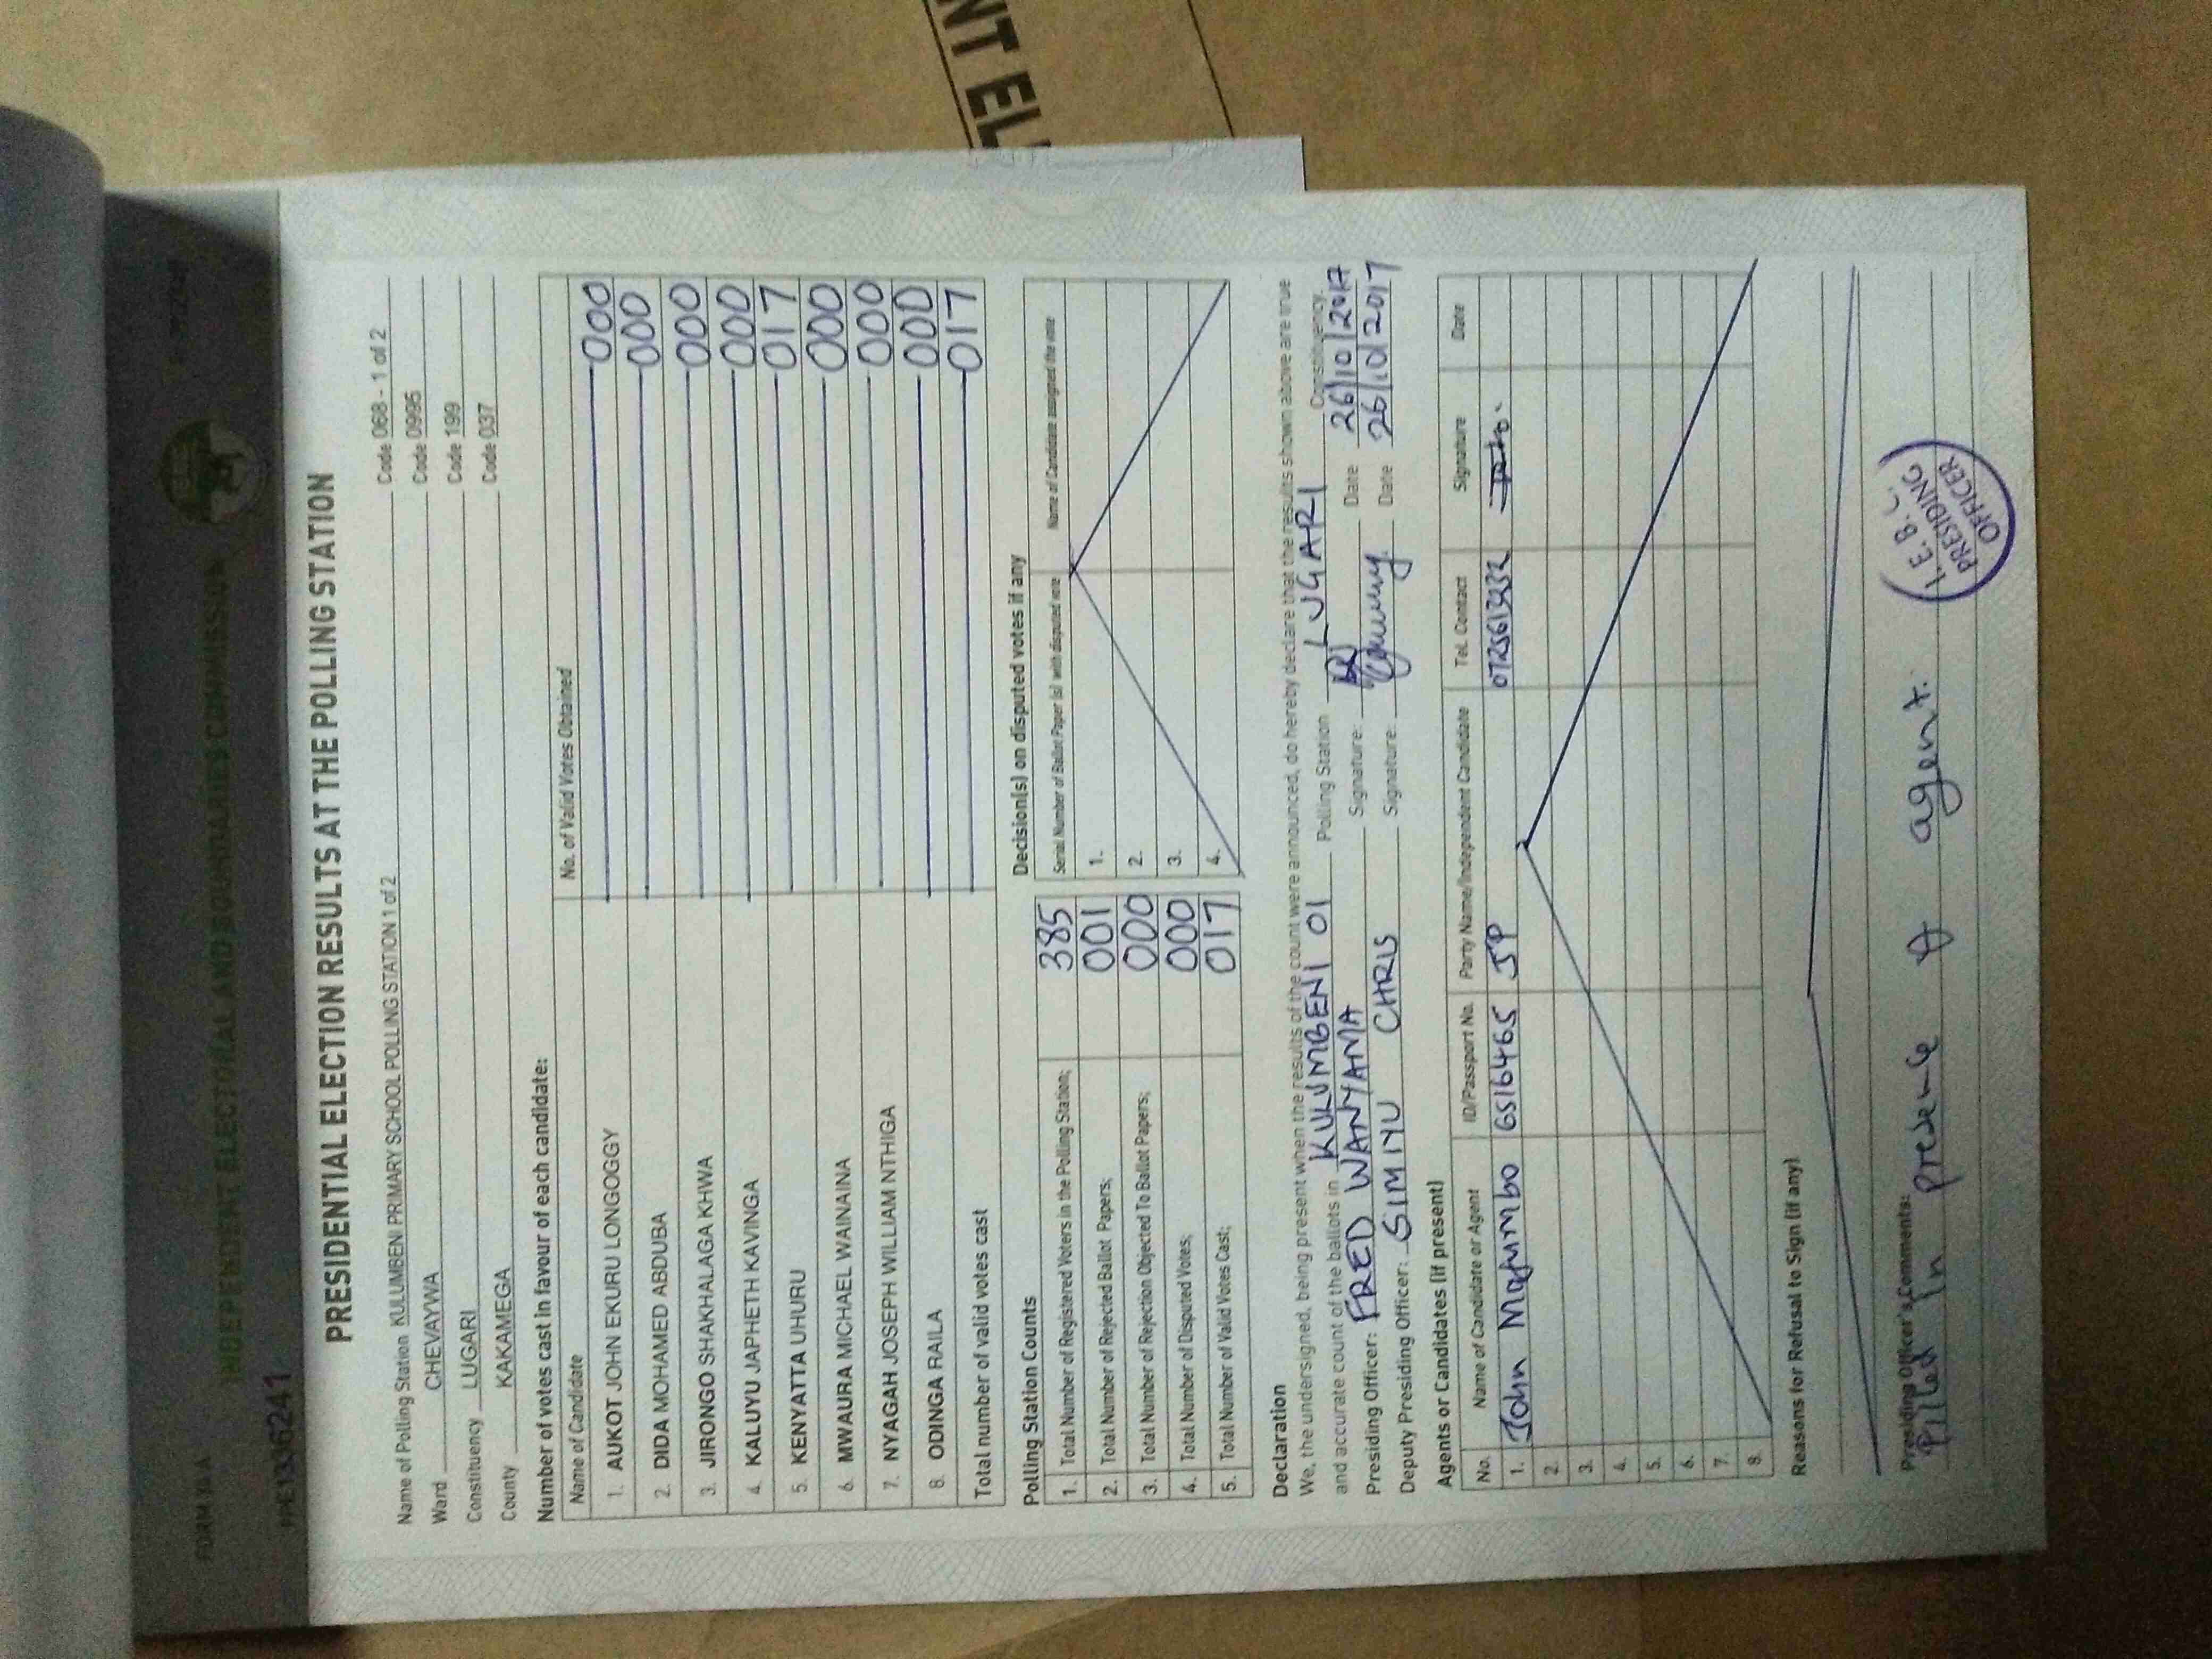 FORM 34 A
INDEPENDENT ELECTORAL AND BOUNDARIES COMMISSION
PRESIDENTIAL ELECTION RESULTS AT THE POLLING STATION
Name of Polling Station KULUMBENI PRIMARY SCHOOL POLLING STATION 1 of 2 Code 068 - 1 of 2
Ward CHEVAYWA Code 0995
Constituency LUGARI Code 199
County KAKAMEGA Code 037
Number of votes cast in favour of each candidate:
Name of Candidate No. of Valid Votes Obtained
1. AUKOT JOHN EKURU LONGOGGY 000
2. DIDA MOHAMED ABDUBA 000
3. JIRONGO SHAKHALAGA KHWA 000
4. KALUYU JAPHETH KAVINGA 000
5. KENYATTA UHURU 017
6. MWAURA MICHAEL WAINAINA 000
7. NYAGAH JOSEPH WILLIAM NTHIGA 000
8. ODINGA RAILA 000
Total number of valid votes cast 017
Polling Station Counts
1. Total Number of Registered Voters in the Polling Station; 385
2. Total Number of Rejected Ballot Papers; 001
3. Total Number of Rejection Objected To Ballot Papers; 000
4. Total Number of Disputed Votes; 000
5. Total Number of Valid Votes Cast; 017
Decision(s) on disputed votes if any
Serial Number of Ballot Paper (s) with disputed vote Name of Candidate assigned the vote
1.
2.
3.
4.
Declaration
We, the undersigned, being present when the results of the count were announced, do hereby declare that the results shown above are true
and accurate count of the ballots in KULUMBENI 01 Polling Station LUGARI Constituency
Presiding Officer: FRED WANYAMA Signature: Date 26/10/2017
Deputy Presiding Officer: SIMIYU CHRIS Signature: Date 26/10/2017
Agents or Candidates (if present)
No. Name of Candidate or Agent ID/Passport No. Party Name/Independent Candidate Tel. Contact Signature Date
1. John 6516465 JP
2.
3.
4.
5.
6.
7.
8.
Reasons for Refusal to Sign (if any)
Presiding Officer's Comments:
Filled in presence of agent.
I.E.B.C.
PRESIDING
OFFICER
NT EL